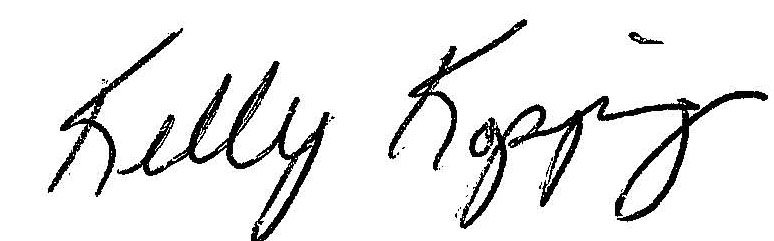 Kelly Kopping